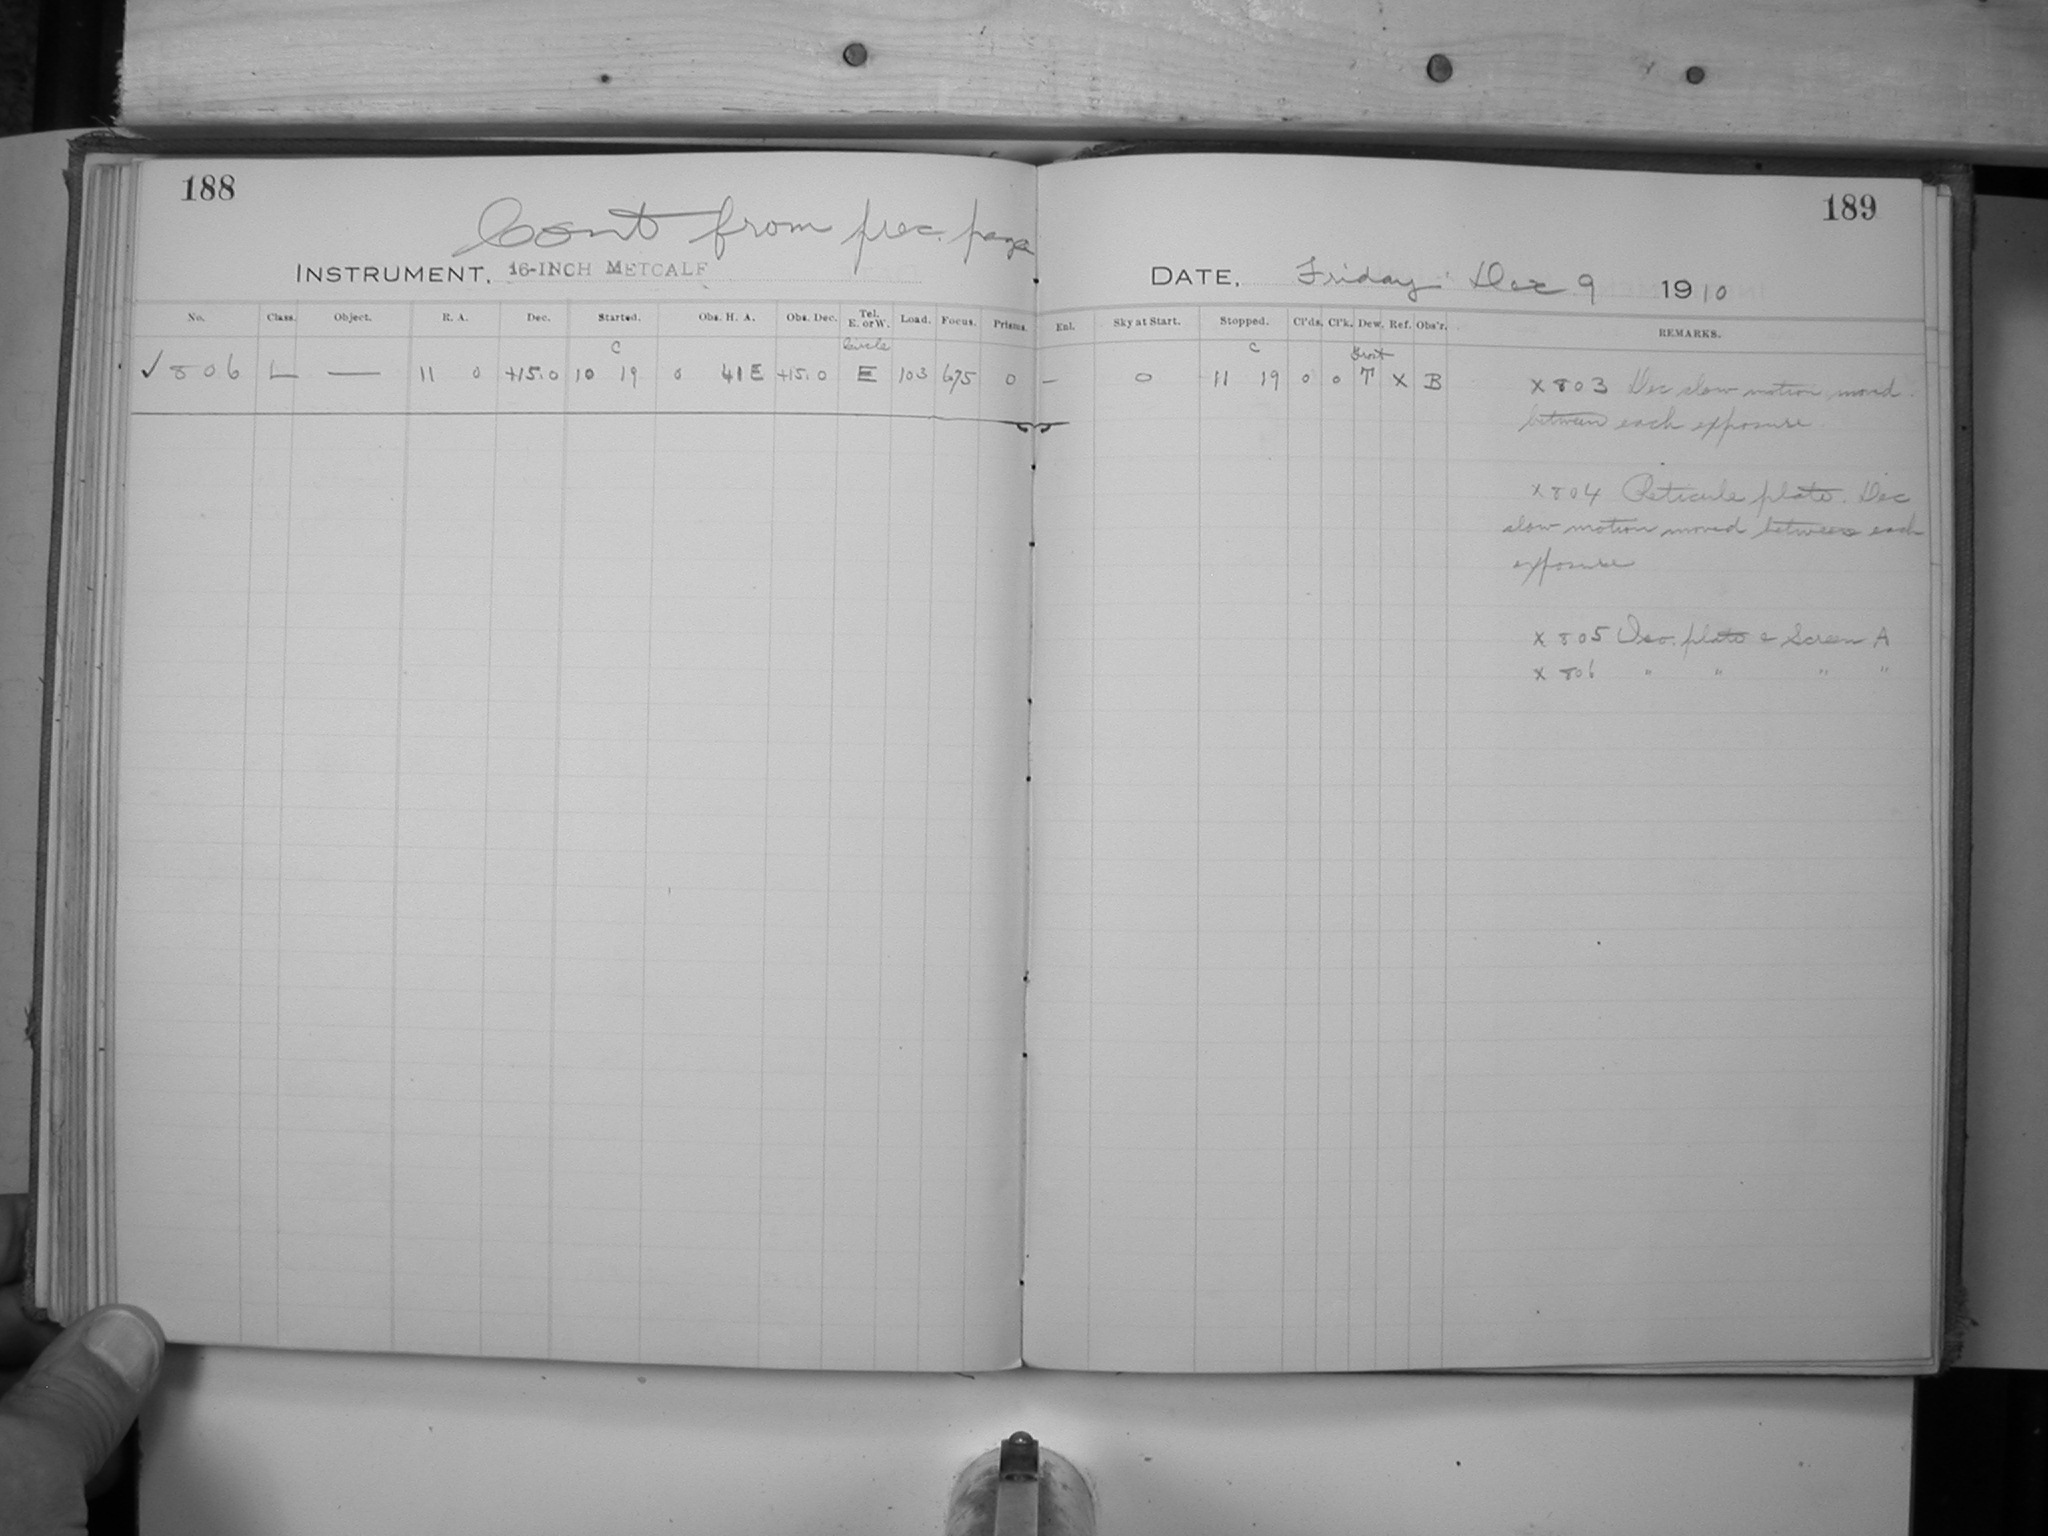 188
Cont from prec. page
INSTRUMENT, 16-INCH METCALF
No. Class. Object. R. A. Dec. Started. Obs. H. A. Obs. Dec. Tel. E. or W. Load. Focus. Prisms.
C Circle
✓ 806 L — 11 0 +15.0 10 19 0 41 E +15.0 E 103 6.75 0
189
DATE, Friday Dec 9 1910
Enl. Sky at Start. Stopped. Cl'ds. Cl'k. Dew. Ref. Obs'r. REMARKS.
C Frost
— 0 11 19 0 0 T X B
X 803 Dec slow motion moved
between each exposure
X 804 Reticule plate. Dec
slow motion moved between each
exposure
X 805 Iso. plate c Screen A
X 806 " " " "